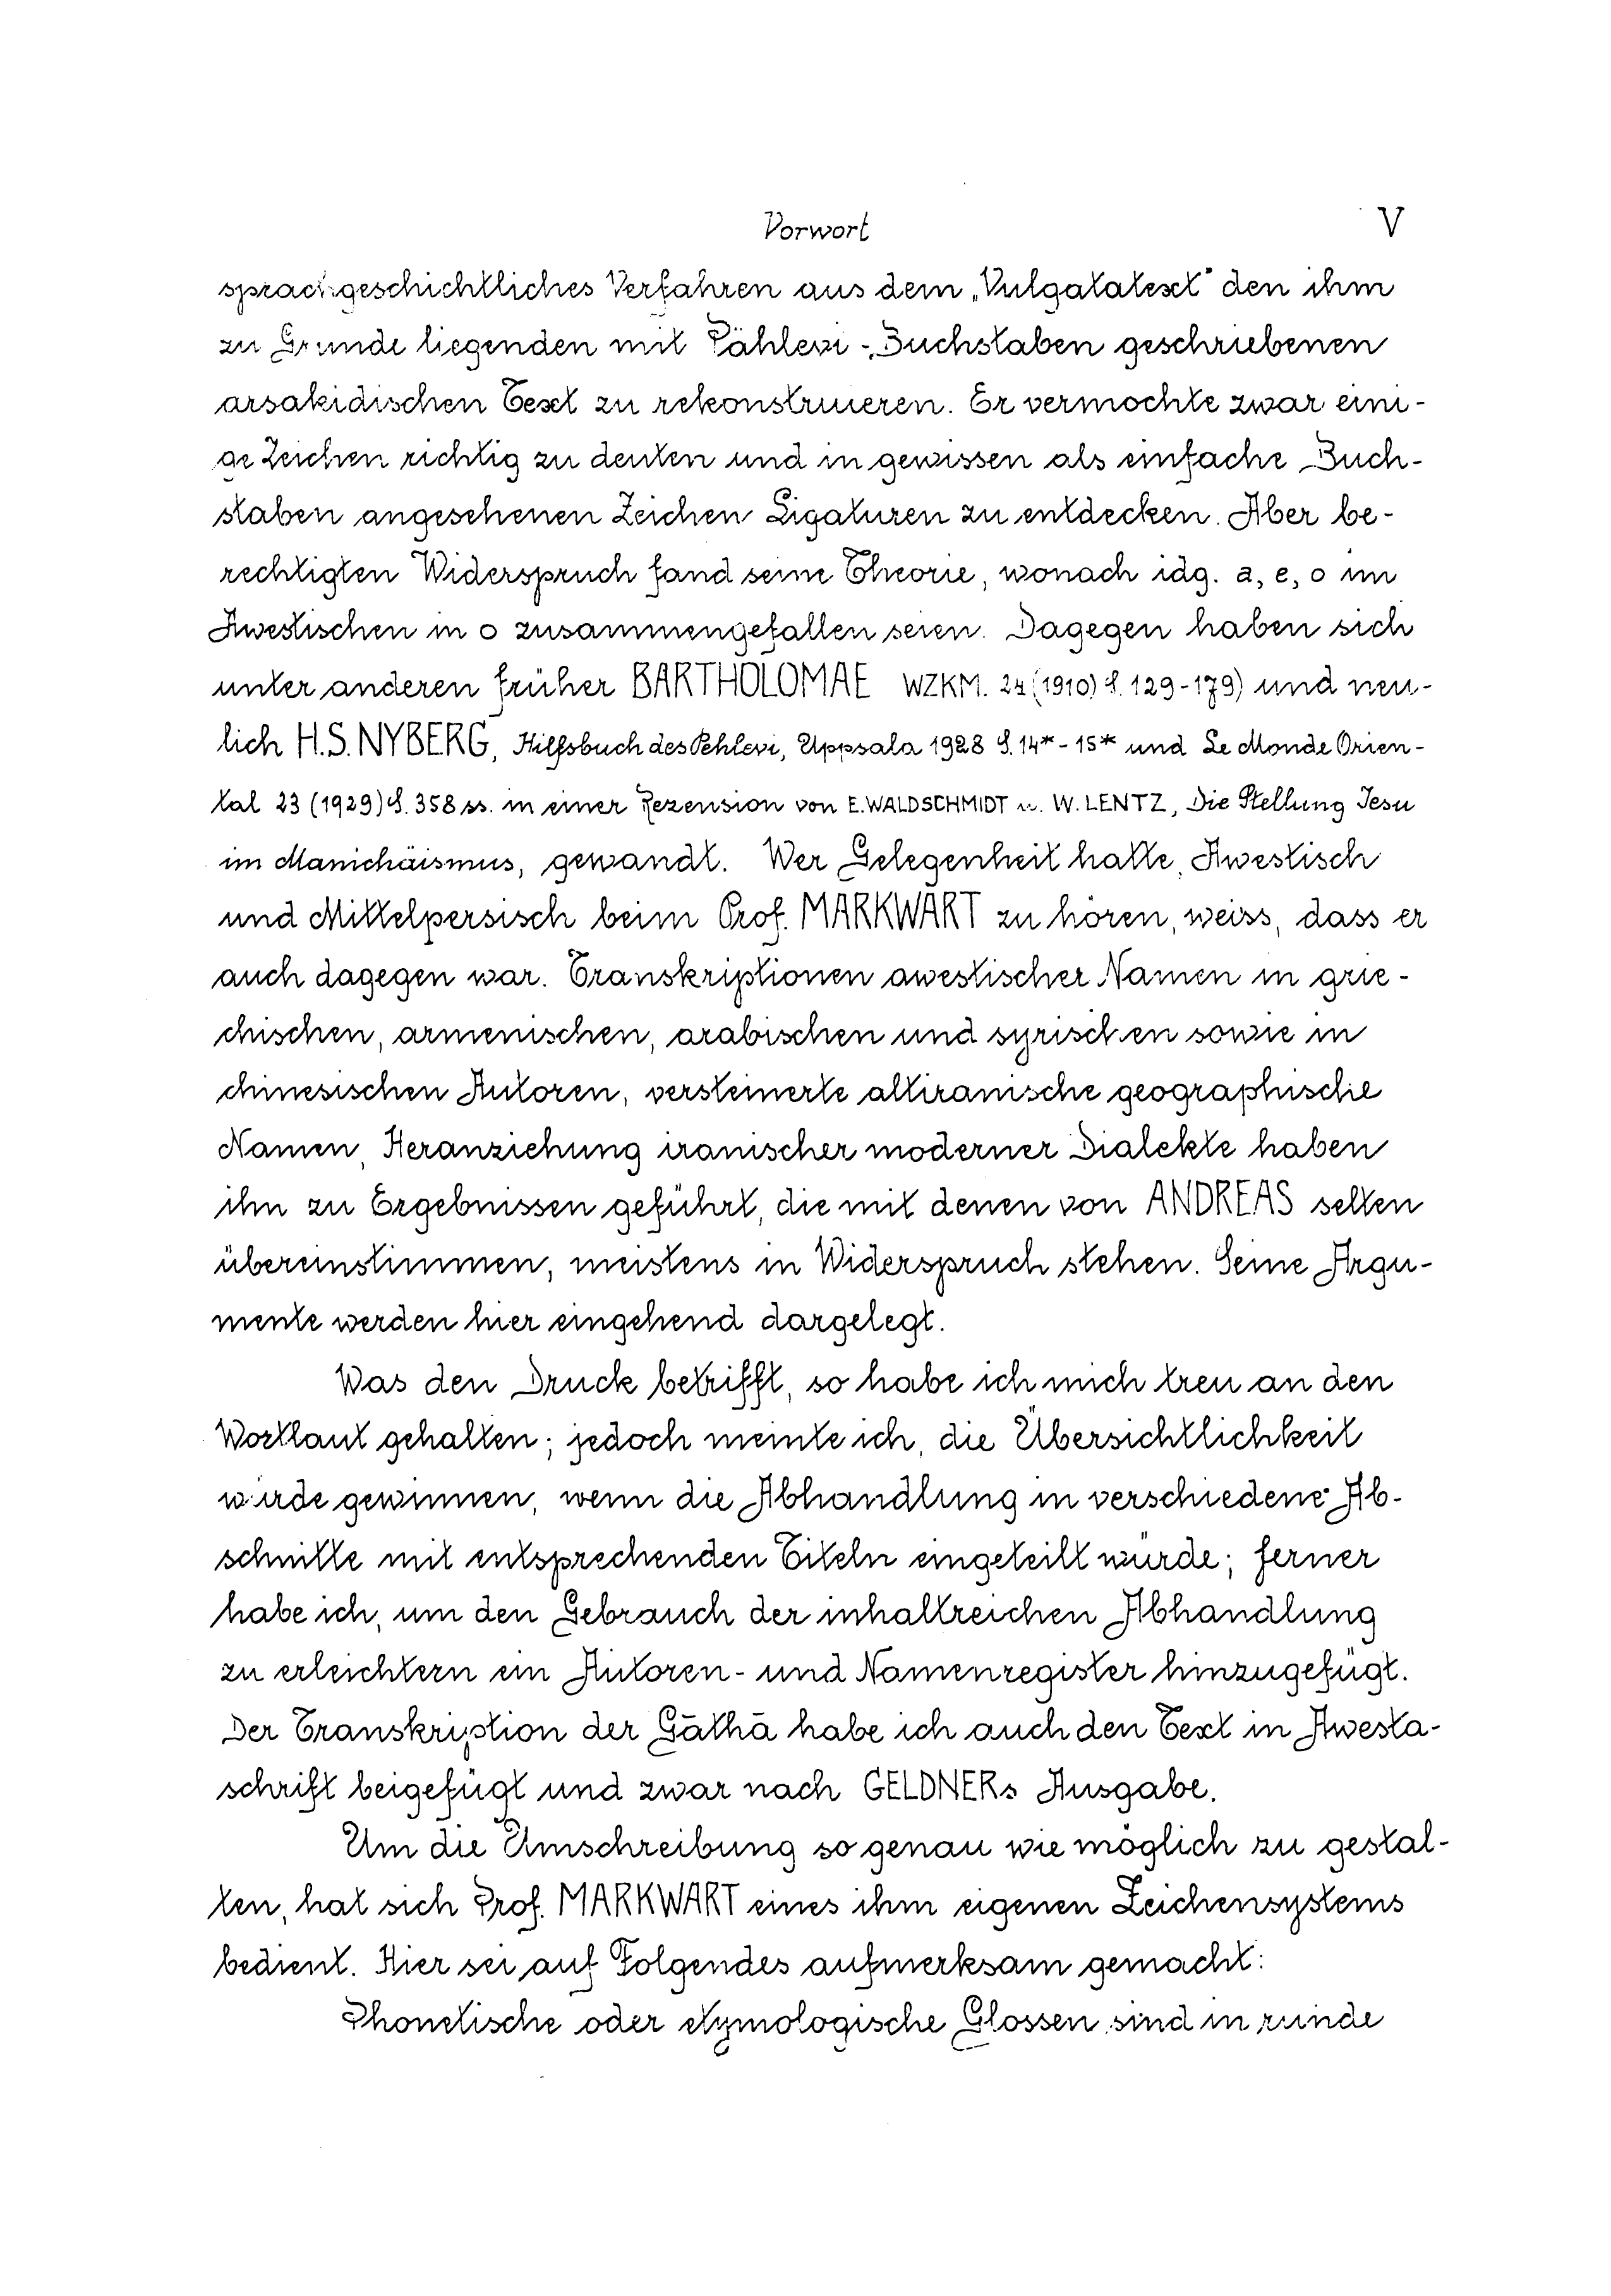 Vorwort
V
sprachgeschichtliches Verfahren aus dem „Vulgatatext" den ihm
zu Grunde liegenden mit Pählevi-Buchstaben geschriebenen
arsakidischen Text zu rekonstruieren. Er vermochte zwar eini-
ge Zeichen richtig zu deuten und in gewissen als einfache Buch-
staben angesehenen Zeichen Ligaturen zu entdecken. Aber be-
rechtigten Widerspruch fand seine Theorie, wonach idg. a, e, o im
Awestischen in o zusammengefallen seien. Dagegen haben sich
unter anderen früher BARTHOLOMAE WZKM. 24 (1910) S. 129-179) und neu-
lich H.S. NYBERG, Hilfsbuch des Pehlevi, Uppsala 1928 S. 14*-15* und Le Monde Orien-
tal 23 (1929) S. 358 ss. in einer Rezension von E. WALDSCHMIDT u. W. LENTZ, Die Stellung Jesu
im Manichäismus, gewandt. Wer Gelegenheit hatte, Awestisch
und Mittelpersisch beim Prof. MARKWART zu hören, weiss, dass er
auch dagegen war. Transkriptionen awestischer Namen in grie-
chischen, armenischen, arabischen und syrischen sowie in
chinesischen Autoren, versteinerte altiranische geographische
Namen, Heranziehung iranischer moderner Dialekte haben
ihn zu Ergebnissen geführt, die mit denen von ANDREAS selten
übereinstimmen, meistens in Widerspruch stehen. Seine Argu-
mente werden hier eingehend dargelegt.
Was den Druck betrifft, so habe ich mich treu an den
Wortlaut gehalten; jedoch meinte ich, die Übersichtlichkeit
würde gewinnen, wenn die Abhandlung in verschiedene Ab-
schnitte mit entsprechenden Titeln eingeteilt würde; ferner
habe ich, um den Gebrauch der inhaltreichen Abhandlung
zu erleichtern ein Autoren- und Namenregister hinzugefügt.
Der Transkription der Gāthā habe ich auch den Text in Awesta-
schrift beigefügt und zwar nach GELDNERs Ausgabe.
Um die Umschreibung so genau wie möglich zu gestal-
ten, hat sich Prof. MARKWART eines ihm eigenen Zeichensystems
bedient. Hier sei auf Folgendes aufmerksam gemacht:
Phonetische oder etymologische Glossen sind in runde